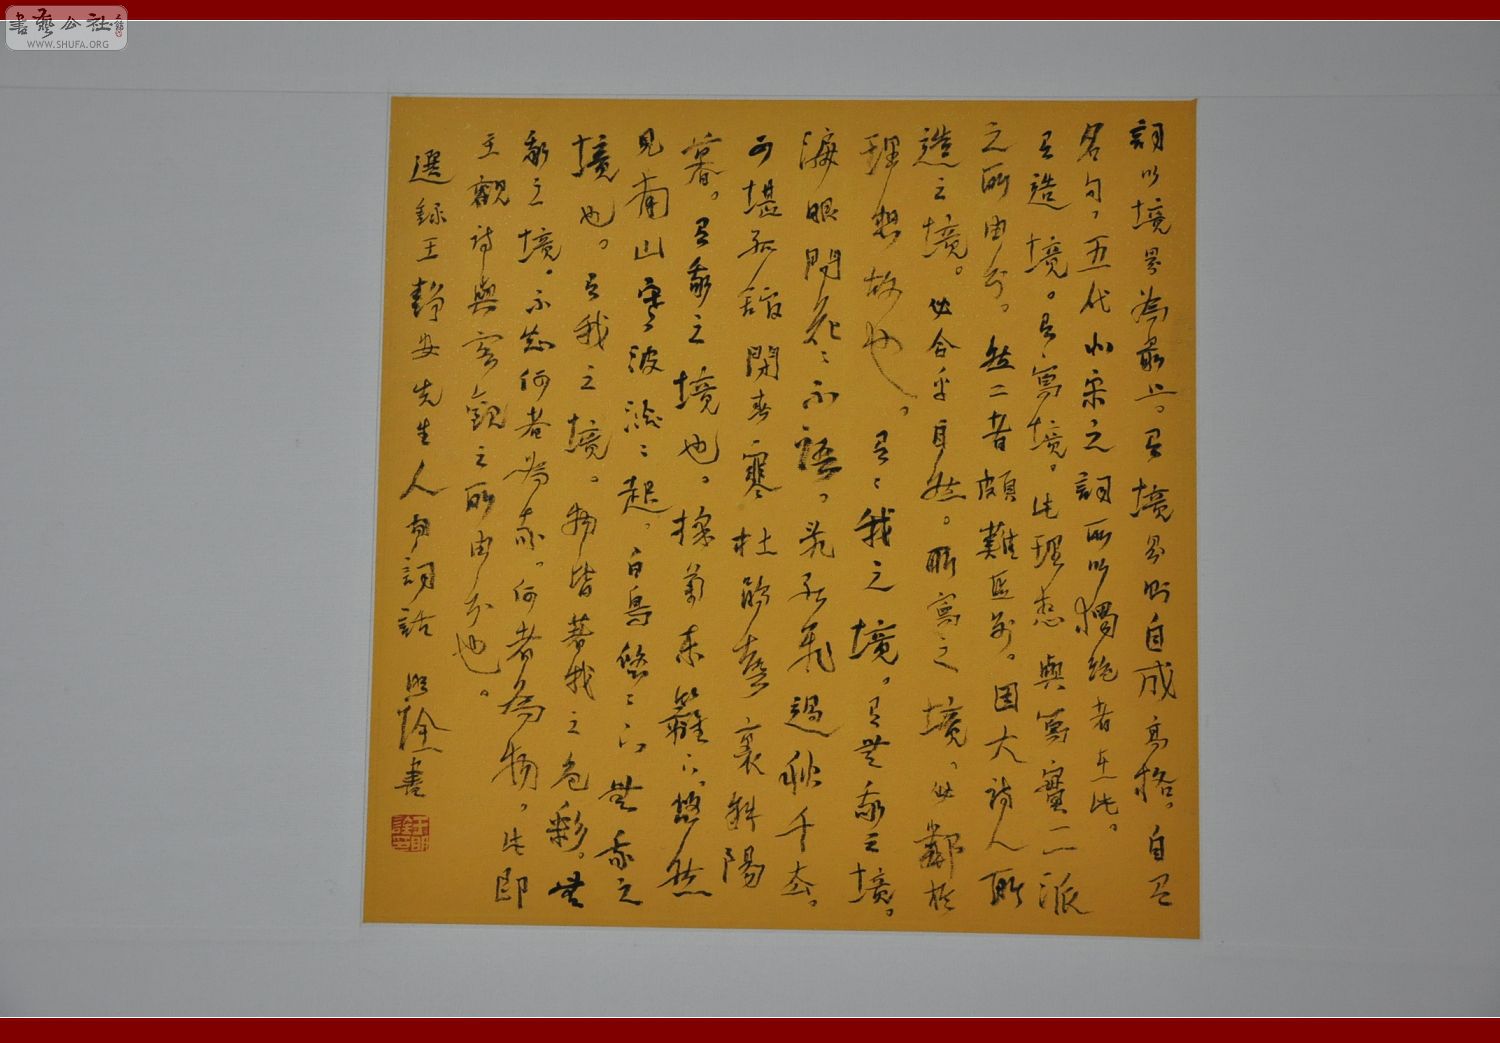 書藝公社
WWW.SHUFA.ORG
詞以境界為最上。有境界則自成高格。自有
名句。五代北宋之詞所以獨絶者在此。
有造境。有寫境。此理想與寫實二派
之所由分。然二者頗難區別。因大詩人所
造之境。必合乎自然。所寫之境。必鄰於
理想故也。有有我之境。有無我之境。
淚眼問花花不語。亂紅飛過秋千去。
可堪孤館閉春寒杜鵑聲裏斜陽
暮。有我之境也。採菊東籬下。悠然
見南山寒波澹澹起。白鳥悠悠下無我之
境也。有我之境。物皆著我之色彩。無
我之境。不知何者為我。何者為物。此即
主觀詩與客觀之所由分也。
選錄王靜安先生人間詞話 明詮書
王明詮印